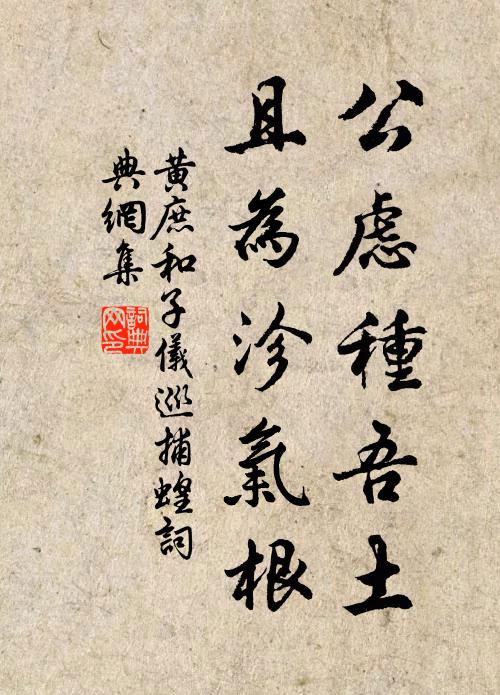 公慮種吾土
且為沴氣根
黃庶和子儀巡捕蝗詞
典網集
詞典網印